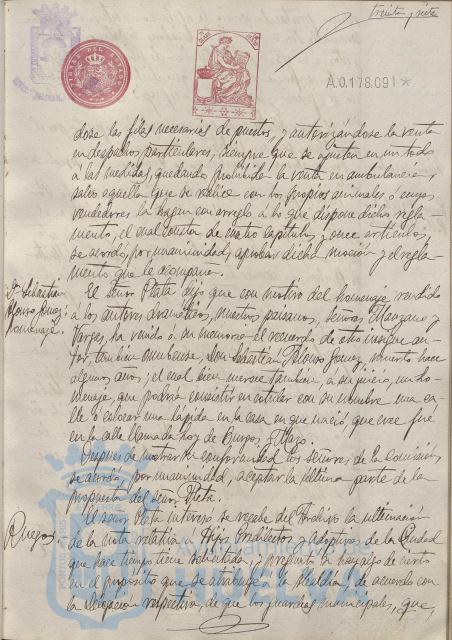 treinta y siete
A.0.178.091*
dose las filas necesarias de puestos, y autorizándose la venta
en despachos particulares, siempre que se ajusten en un todo
a las medidas, quedando prohibida la venta en ambulancia,
salvo aquella que se realice con los propios animales ó cuyos
vendedores la hagan con arreglo a lo que dispone dicho regla-
mento, el cual consta de cuatro capítulos y once artículos,
se acordó, por unanimidad, aprobar dicha moción y el regla-
mento que le acompaña.
Dn Sebastian
Alonso Gomez
homenaje.
El señor Plata dijo que con motivo del homenaje rendido
á los autores dramáticos, nuestros paisanos, señores Manzano y
Vargas, ha venido á su memoria el recuerdo de otro insigne au-
tor, tambien onubense, Don Sebastián Alonso Gomez, muerto hace
algunos años; el cual bien merece tambien, á su juicio, un ho-
menaje, que podría consistir en titular con su nombre una ca-
lle ó colocar una lápida en la casa en que nació, que cree fué
en la calle llamada hoy de Burgos y Mazo.
Despues de mostrar su conformidad los señores de la Comisión,
se acordó, por unanimidad, aceptar la última parte de la
propuesta del señor Plata.
Ruegos.-
El señor Plata interesó se recabe del Archivo la ultimación
de la nota relativa a Hijos Predilectos y adoptivos de la Ciudad
que hace tiempo tiene solicitada, y preguntó si hay algo de cierto
en el propósito que se atribuye a la Alcaldía, de acuerdo con
la Delegación respectiva, de que los guardias municipales, que,
Ayuntamiento de
HUELVA